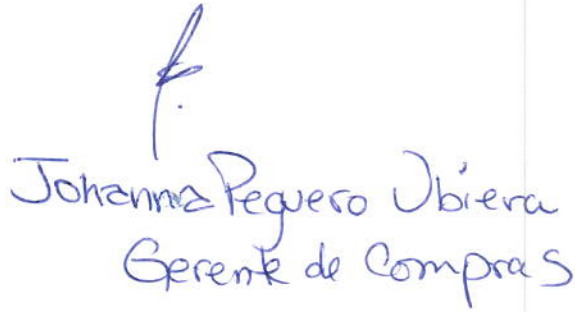 Johanna Peguero Ubiera
Gerente de Compras